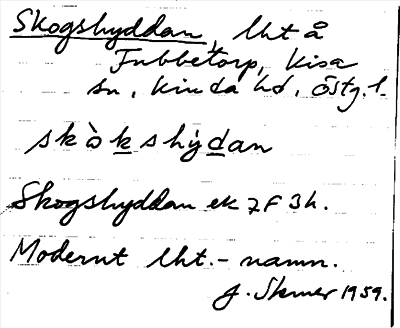 Skogshyddan, lht å
Fubbetorp, Kisa
sn, Kinda hd, Östg. l.
skòkshy̆dan
Skogshyddan ek 7F 3h.
Modernt lht.-namn.
J. 1959.